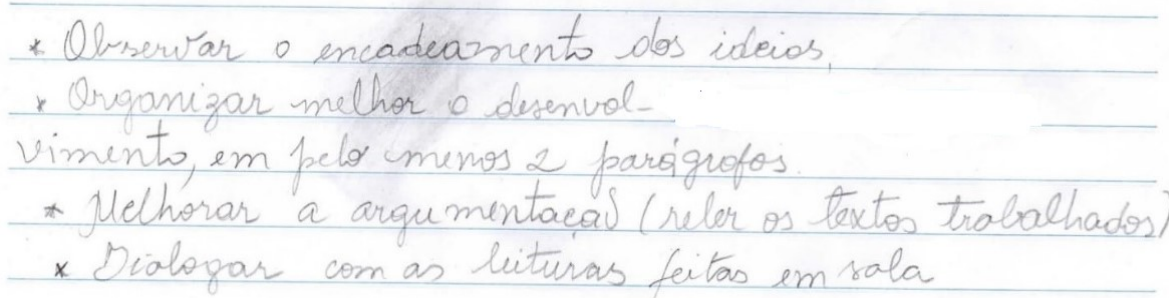 * Observar o encadeamento das ideias,
* Organizar melhor o desenvol-
vimento, em pelo menos 2 parágrafos.
* Melhorar a argumentação (reler os textos trabalhados)
* Dialogar com as leituras feitas em sala